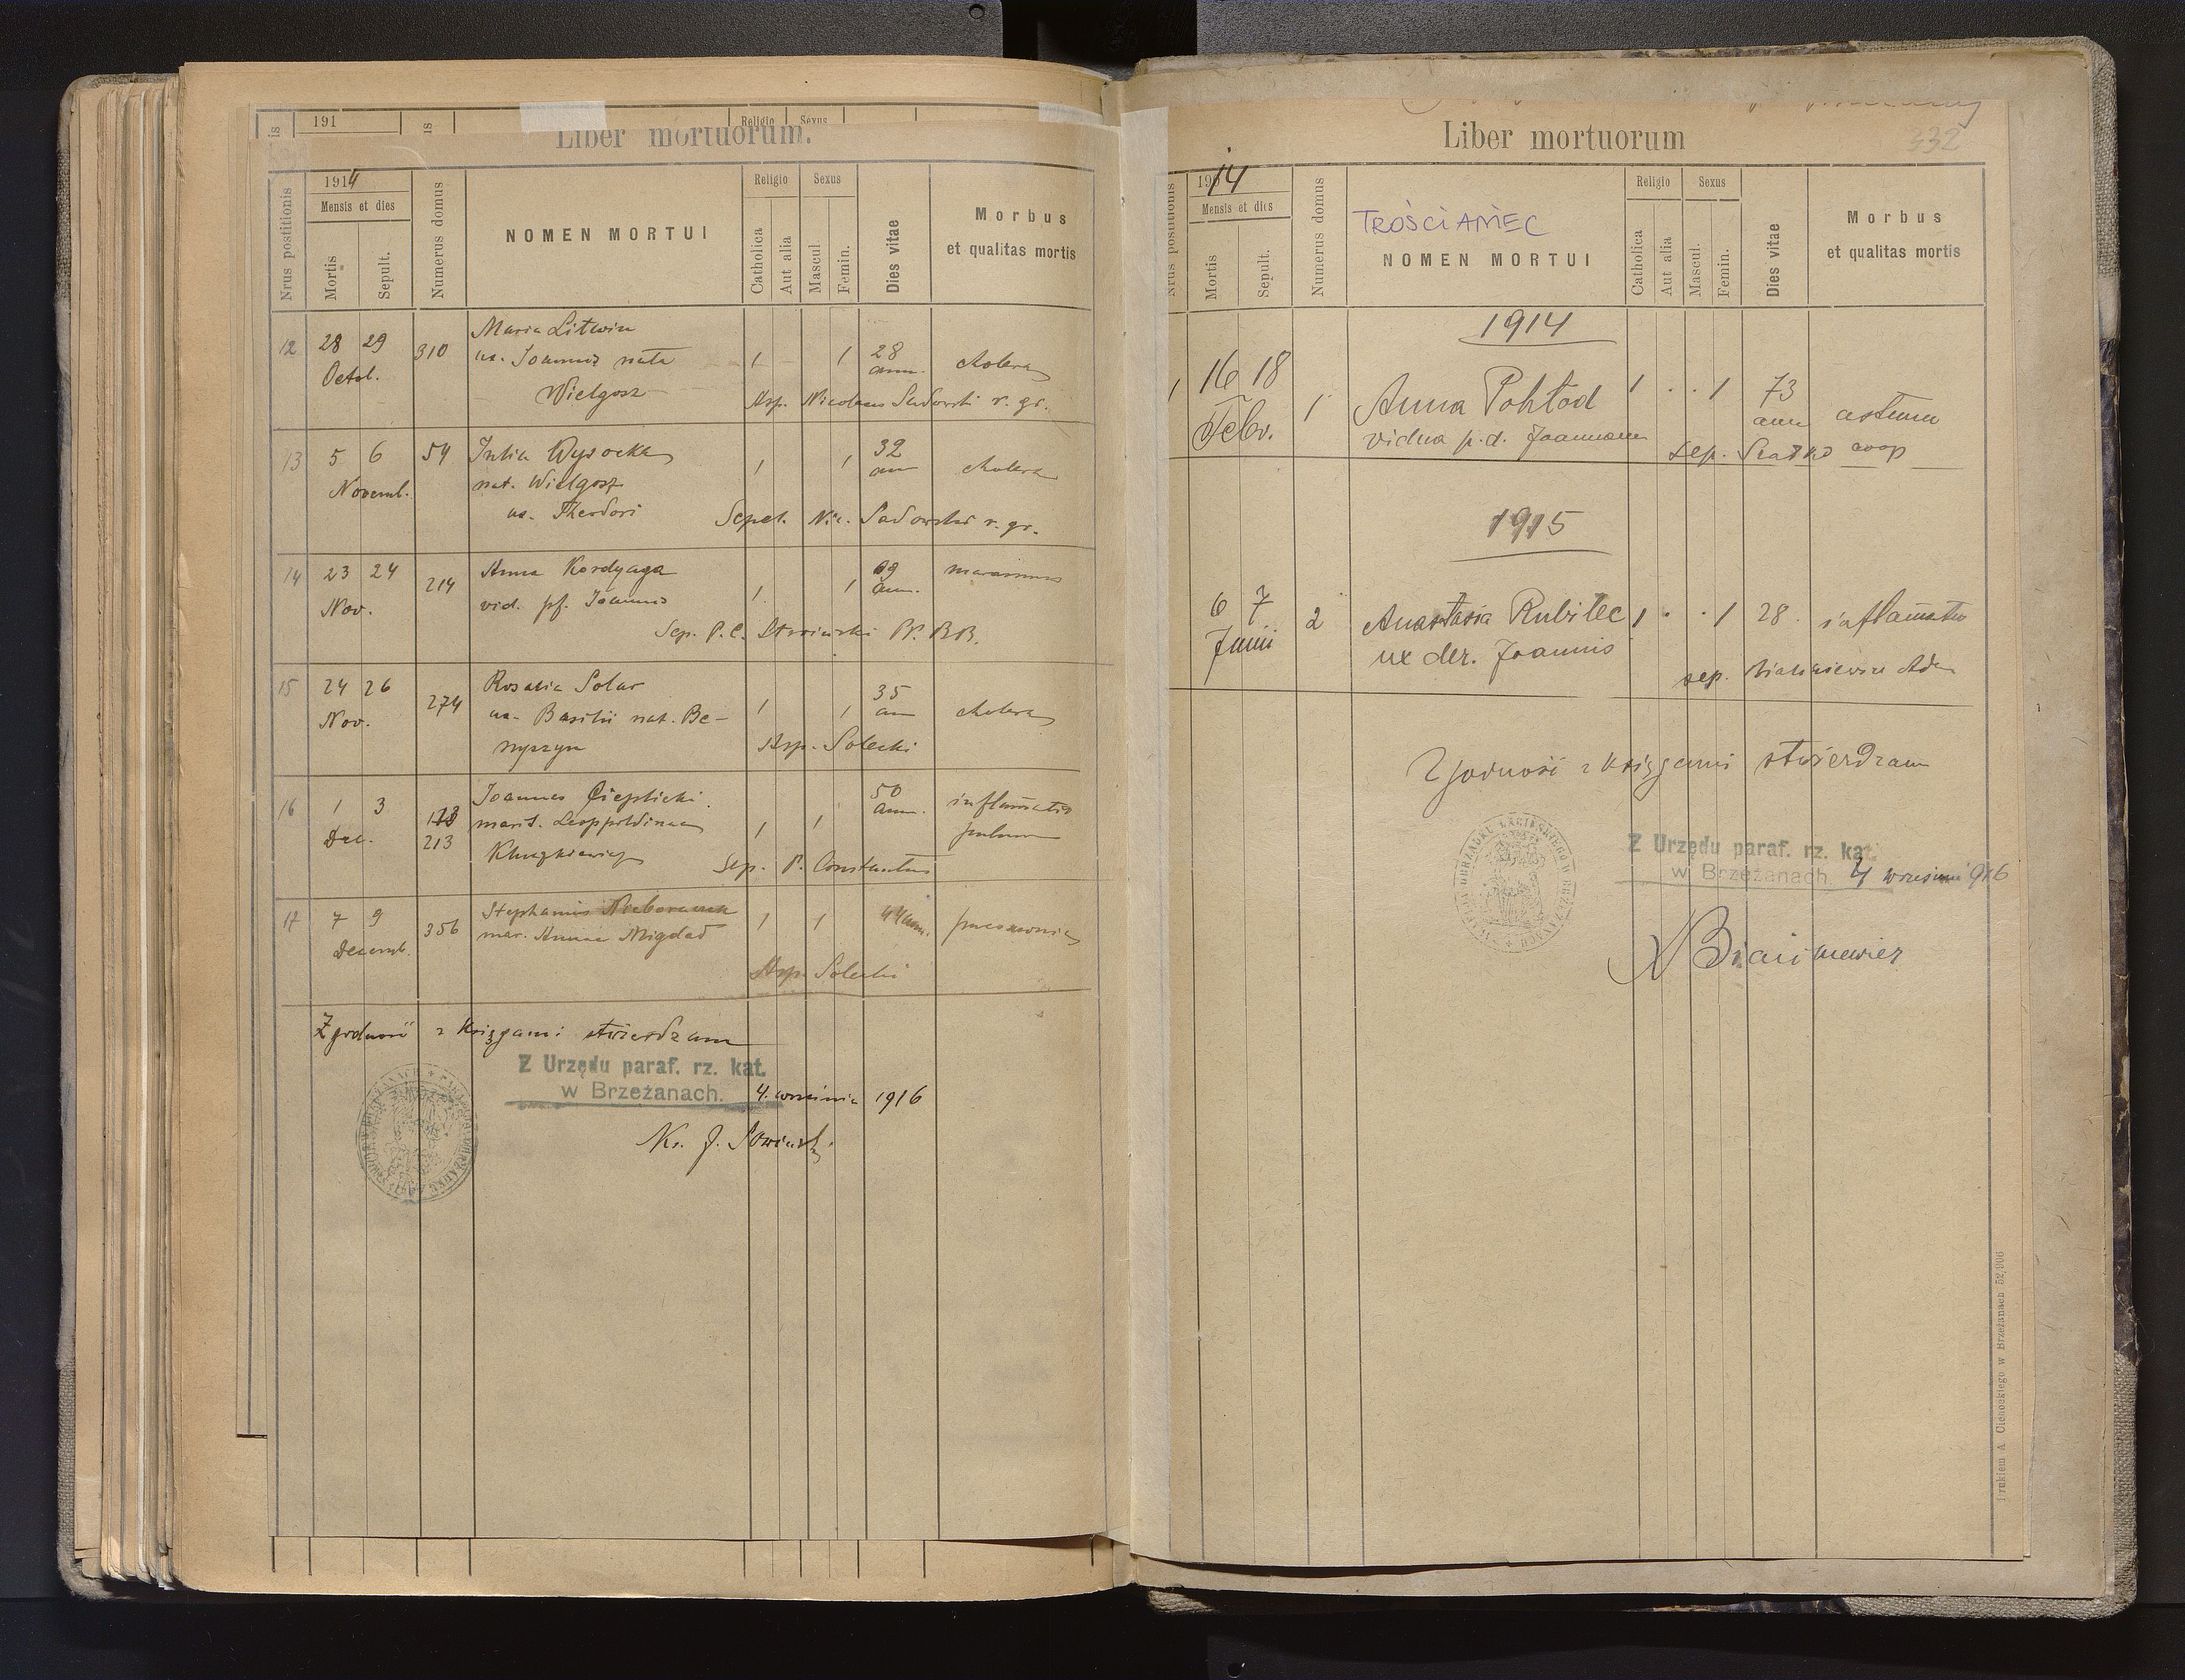 191
Religio Sexus
Liber mortuorum.
Nrus postitionis
1914
Mensis et dies
Mortis
Sepult.
Numerus domus
NOMEN MORTUI
Religio
Catholica
Aut alia
Sexus
Mascul.
Femin.
Dies vitae
Morbus
et qualitas mortis
12 28 29 310 Maria Litwin
Octob. ux. Joannis nata 1 1 28 cholera
Wielgosz ann.
Asp. Nicolaus Sadowski r. gr.
13 5 6 54 Julia Wysocka 32
Novemb. nat. Wielgosz 1 1 ann cholera
ux. Theodori Sepel. Nic. Sadowski r. gr.
14 23 24 214 Anna Kordyaga 69 marasmus
Nov. vid. pf. Joannis 1 1 ann.
Sep. P. C. PP. BB.
15 24 26 274 Rosalia Solar 35
Nov. ux. Basilii nat. Be- 1 1 ann cholera
Asp. Solecki
16 1 3 Joannes Cieplicki 50 inflamatio
Dec. 213 marit. Leopoldinae 1 1 ann. pulmon
Sep. P. Constantinus
17 7 9 356 Stephanus 1 1 44 ann. pneumonia
Decemb. mar. Annae Migdad
Asp. Solecki
Zgodność z księgami stwierdzam
Z Urzędu paraf. rz. kat.
w Brzeżanach. 4. września 1916
Ks. J.
Liber mortuorum
332
Nrus postitionis
1914
Mensis et dies
Mortis
Sepult.
Numerus domus
TROŚCIANIEC
NOMEN MORTUI
Religio
Catholica
Aut alia
Sexus
Mascul.
Femin.
Dies vitae
Morbus
et qualitas mortis
1914
1 16 18 1 Anna Pohłod 1 . . 1 73
Febr. vidua p. d. Joannem ann astma
sep. coop
1915
6 7 2 Anastasia Rubilec 1 . . 1 28. inflamatio
Junii ux der. Joannis
sep.
Zgodność z księgami stwierdzam
Z Urzędu paraf. rz. kat.
w Brzeżanach. 4 września 1916
Drukiem A. Cichockiego w Brzeżanach 52/906